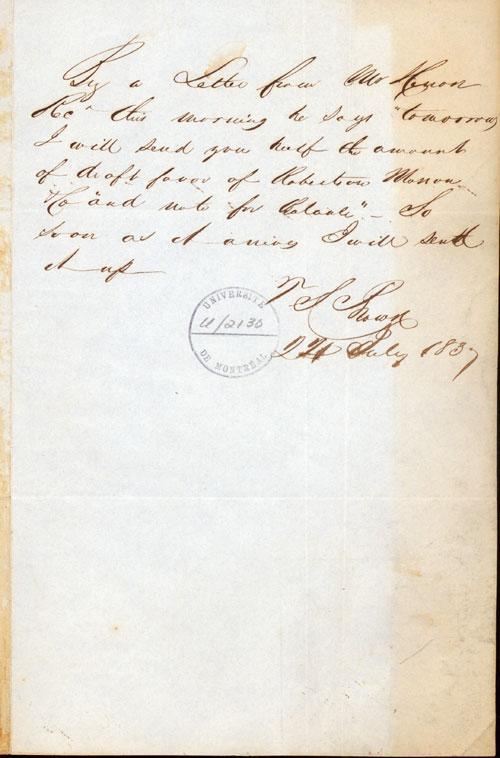 By a Letter from Mr
Rec'd this morning he says "tomorrow
I will send you half the amount
of draft favor of Robertson Masson
& Co" and note for balance" - So
soon as it arrives I will send
it up
T S Brown
24 July 1837
UNIVERSITÉ
U/2130
DE MONTRÉAL